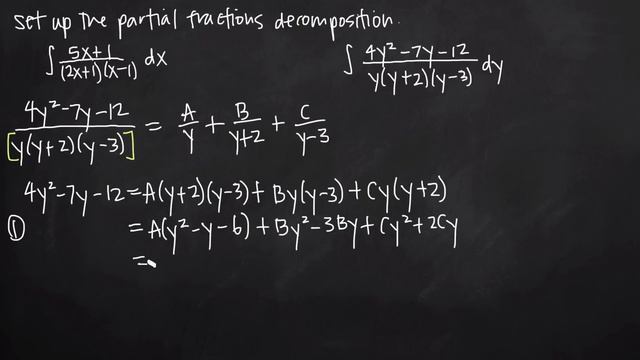 set up the partial fractions decomposition.
∫ (5x+1)/((2x+1)(x-1)) dx ∫ (4y²-7y-12)/(y(y+2)(y-3)) dy
(4y²-7y-12)/[y(y+2)(y-3)] = A/y + B/(y+2) + C/(y-3)
4y²-7y-12 = A(y+2)(y-3) + By(y-3) + Cy(y+2)
① = A(y²-y-6) + By²-3By + Cy²+2Cy
=